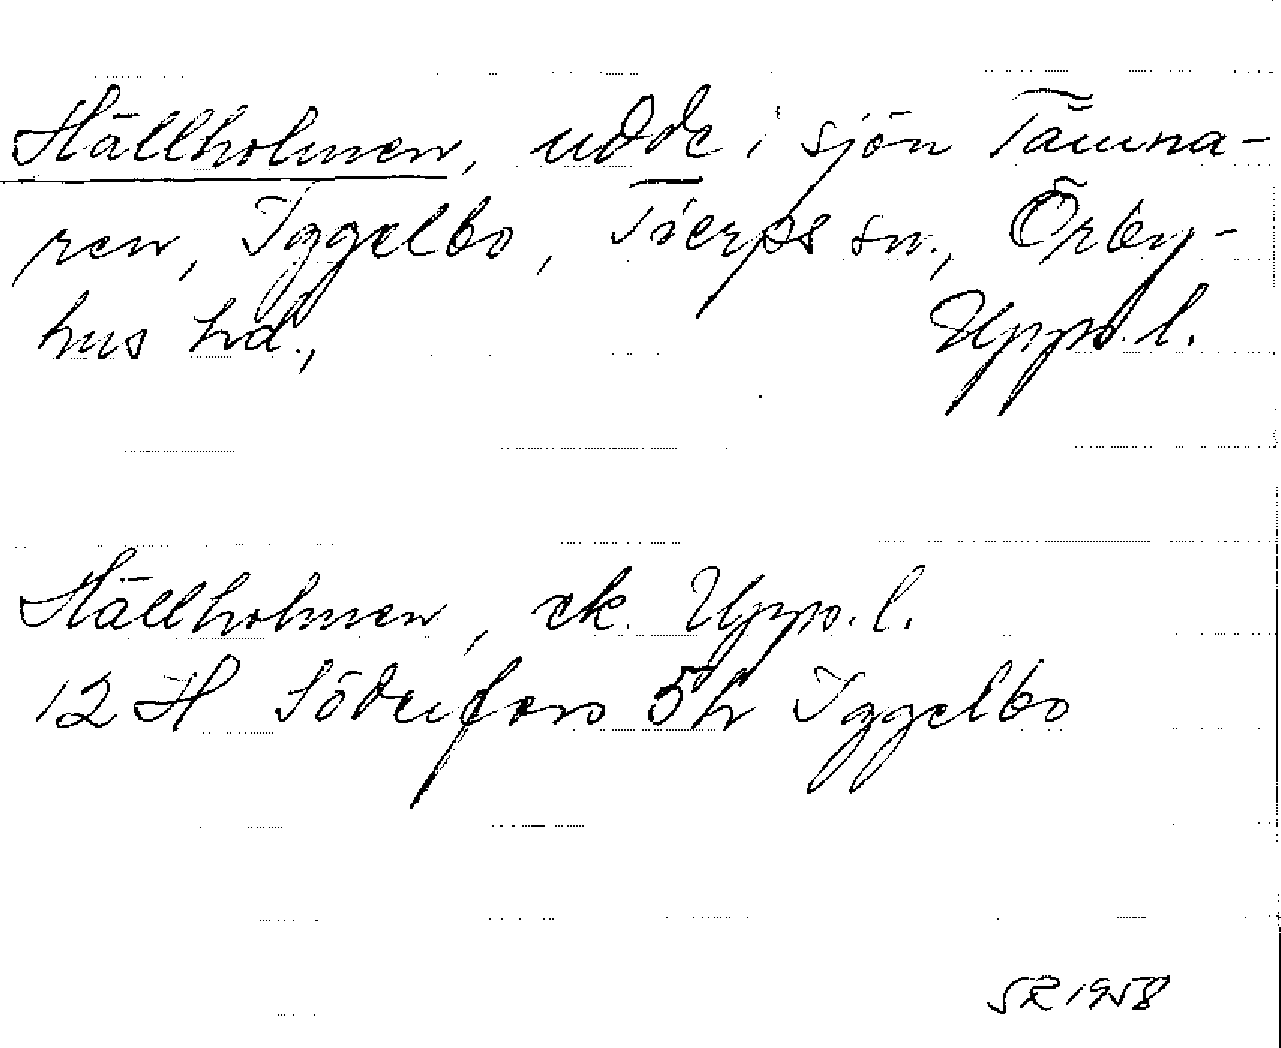 Hällholmen, udde i sjön Tämna-
ren, Iggelbo, Tierps sn., Örby-
hus hd., Upps. l.
Hällholmen, ek. Upps. l.
12 H Söderfors 5h Iggelbo
SR 1958